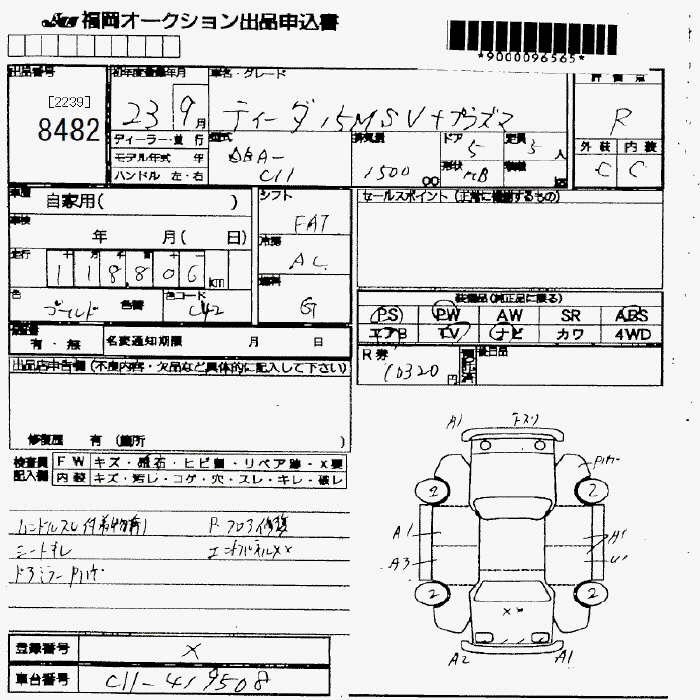 福岡オークション出品申込書
*9000096565*
出品番号
[2239]
8482
初年度登録年月
23 9月
車名・グレード
ティーダ 15M SV+プラズマ
評価点
R
外装 内装
C C
ディーラー・並行
モデル年式 年
ハンドル 左・右
型式
DBA-
C11
排気量
1500 cc
ドア
5
形状
HB
定員
5人
積載
車歴
自家用( )
車検
年 月( 日)
走行
十 万 千 百 十 一
118,806 km
色
ゴールド
色替
色コード
シフト
FAT
冷房
AC
燃料
G
セールスポイント
装備品(純正品に限る)
PS PW AW SR ABS
エアB TV ナビ カワ 4WD
有・無
名変通知期限 月 日
R券
10320円
後日品
出品店申告欄(不良内容・欠品など具体的に記入して下さい)
修復歴 有 (箇所 )
検査員記入欄
FW キズ・飛石・ヒビ割・リペア跡・X要
内装 キズ・汚レ・コゲ・穴・スレ・キレ・破レ
ハンドルスレ 付着物有り
シートスレ
ドアミラー
Rフロア修理
エンドパネルXX
A1
2
2
A1
A3
2
2
XP
A2
A1
登録番号
X
車台番号
C11-419508